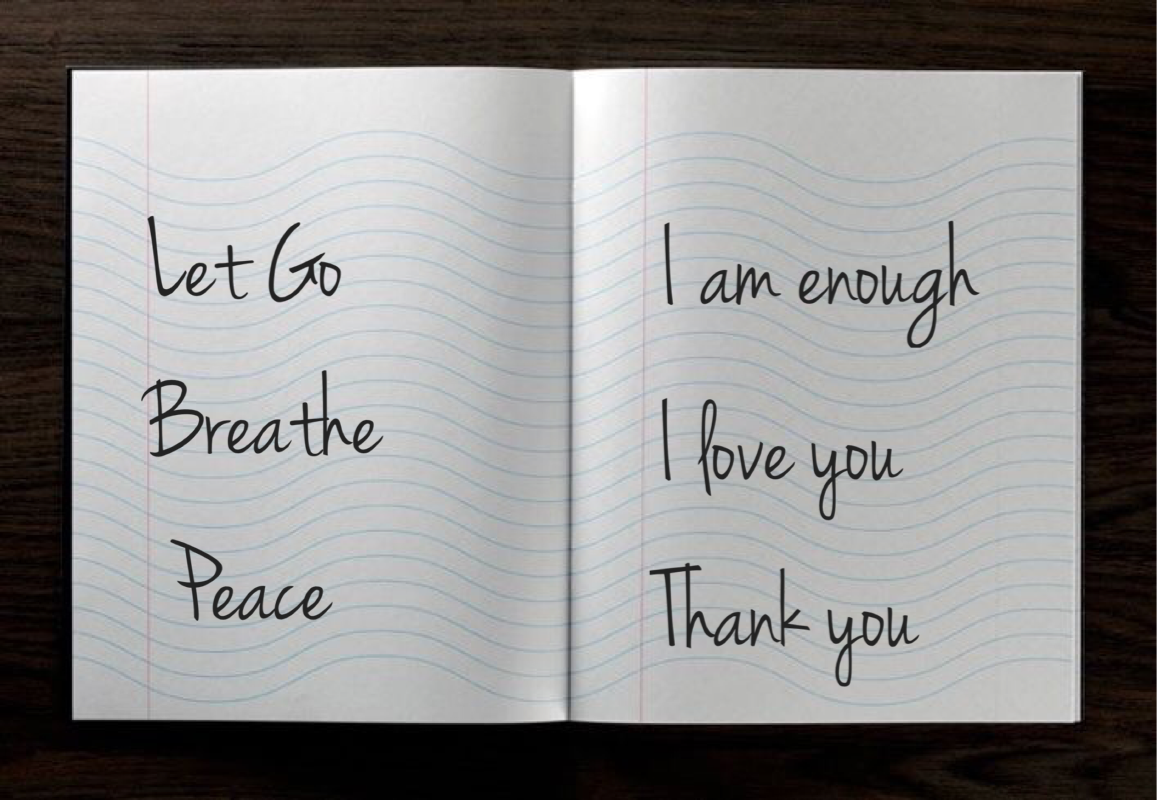 Let Go
Breathe
Peace
I am enough
I love you
Thank you